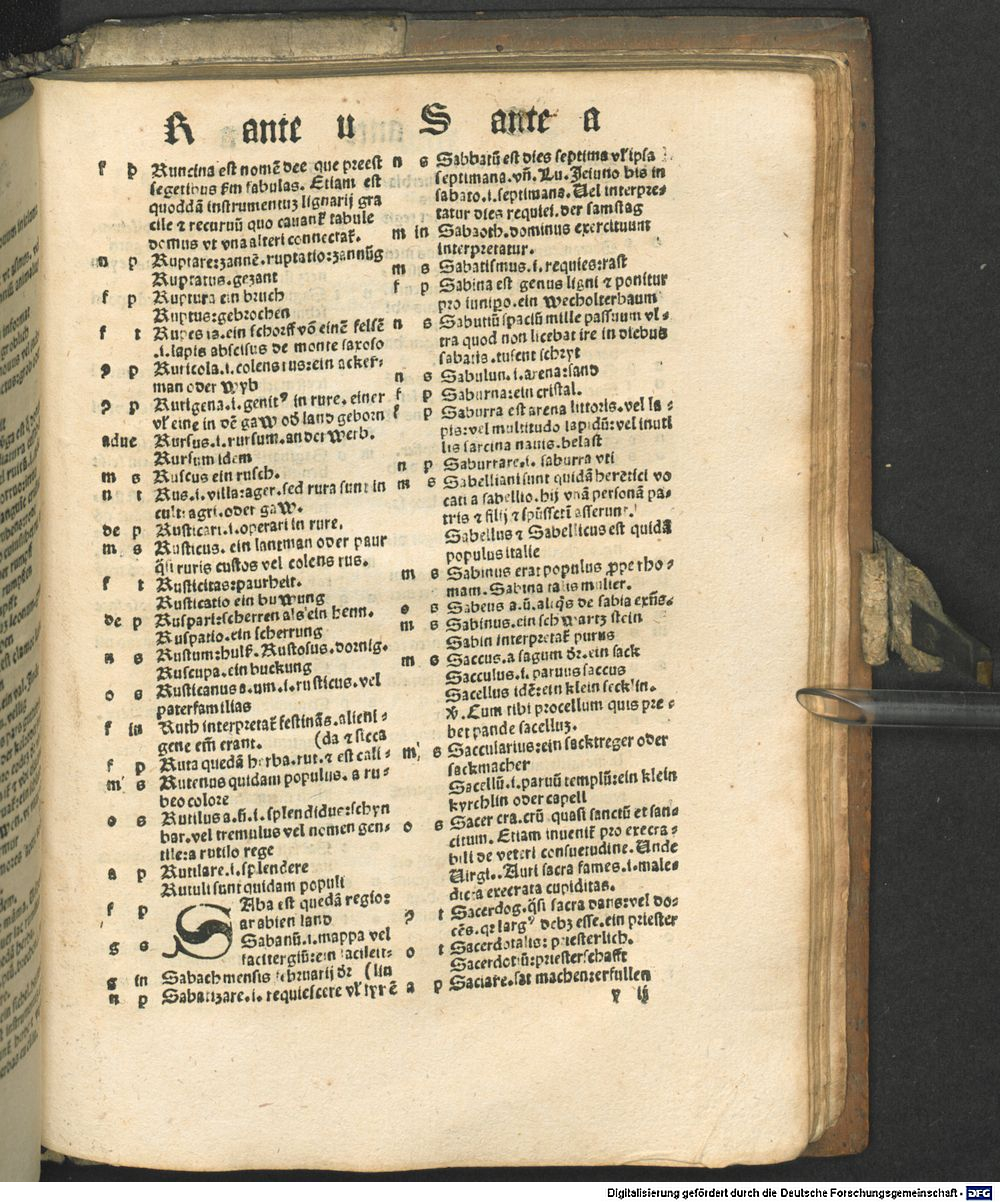 R ante u S ante a
f p Runcina est nomē dee que preest
segetibus ſm fabulas. Etiam est
quoddā instrumentuz lignarij gra
cile & recuruū quo cauant᷑ tabule
domus vt vna alteri connectat᷑.
n p Ruptare:zannē.ruptatio:zannūg
Ruptatus.gezant
f p Ruptura ein bruch
Ruptus:gebrochen
f t Rupes is.ein schorff vō einē felsē
.i.lapis abscisus de monte saxoso
ꝯ p Ruricola.i.colens rus:ein acker-
man oder wyb
ꝯ p Rurigena.i.genitꝰ in rure.einer
vľ eine in dē gaw od̕ land geborn
adue Rursus.i.rursum.anderwerb.
Rursum idem
m s Ruscus ein rusch.
n t Rus.i.villa:ager.sed rura sunt in
culti agri.oder gaw.
de p Rusticari.i.operari in rure.
m s Rusticus. ein lantman oder paur
q̄si ruris custos vel colens rus.
f t Rusticitas:paurheit.
Rusticatio ein buwung
de p Ruspari:scherren als ein henn.
Ruspatio.ein scherrung
n s Rustum:hulſt. Rustosus.dornig.
Ruscupa.ein buckung
o s Rusticanus a.um.i.rusticus.vel
paterfamilias
f in Ruth interpretat᷑ festinās.alieni-
gene em̄ erant. (da & sicca
f p Ruta quedā herba.rut.& est cali-
m s Rutenus quidam populus. a ru-
beo colore
o s Rutilus a.ū.i.splendidus:schyn
bar.vel tremulus vel nomen gen-
tile:a rutilo rege
a p Rutilare.i.splendere
Rutuli sunt quidam populi
f p SAba est quedā regio:
arabien land
g s Sabanū.i.mappa vel
facitergiū:ein facilett-
g in Sabach mensis februarij dr̄ (lin
n p Sabatizare.i.requiescere vľ fyrē
n s Sabbatū est dies septima vľ ipsa
septimana.vn̄. Lu. Ieiuno bis in
sabato.i.septimana. Uel interpre-
tatur dies requiei.der samstag
m in Sabaoth.dominus exercituum
interpretatur.
m s Sabatismus.i.requies:rast
f p Sabina est genus ligni & ponitur
pro iunipo.ein wecholterbaum
n s Sabutiū spaciū mille passuum vľ-
tra quod non licebat ire in diebus
sabatis.tusent schryt
n s Sabulun.i.arena:sand
f p Saburna:ein cristal.
f p Saburra est arena littoris.vel la-
pis:vel multitudo lapidū:vel inuti
lis sarcina nauis.belast
n p Saburrare.i.saburra vti
m s Sabelliani sunt quidā heretici vo
cati a sabellio.hij vnā personā pa-
tris & filij & spūssctī asserunt.
Sabellus & Sabellicus est quidā
populus italie
m s Sabinus erat populus ꝓpe rho-
mam. Sabina talis mulier.
o s Sabeus a.ū.aliq̇s de sabia exn̄s.
m s Sabinus.ein schwartz stein
Sabin interpretat᷑ purus
m s Saccus.a sagum dr̄.ein sack
Sacculus.i.paruus saccus
Sacellus idē:ein klein secklin.
v̕. Cum tibi procellum quis pre-
bet pande sacelluz.
m s Saccularius:ein sacktreger oder
sackmacher
Sacellū.i.paruū templū:ein klein
kyrchlin oder capell
o s Sacer cra.crū quasi sanctū et san-
citum. Etiam inuenit᷑ pro execra-
bili de veteri consuetudine. Unde
Uirgi.. Auri sacra fames.i.male-
dicta execrata cupiditas.
ꝯ t Sacerdos.q̄si sacra dans:vel do-
cēs.qr largꝰ debz esse.ein priester
o t Sacerdotalis: priesterlich.
Sacerdotiū:priesterschafft
a p Saciare.sat machen:erfullen
y iij
Digitalisierung gefördert durch die Deutsche Forschungsgemeinschaft - DFG